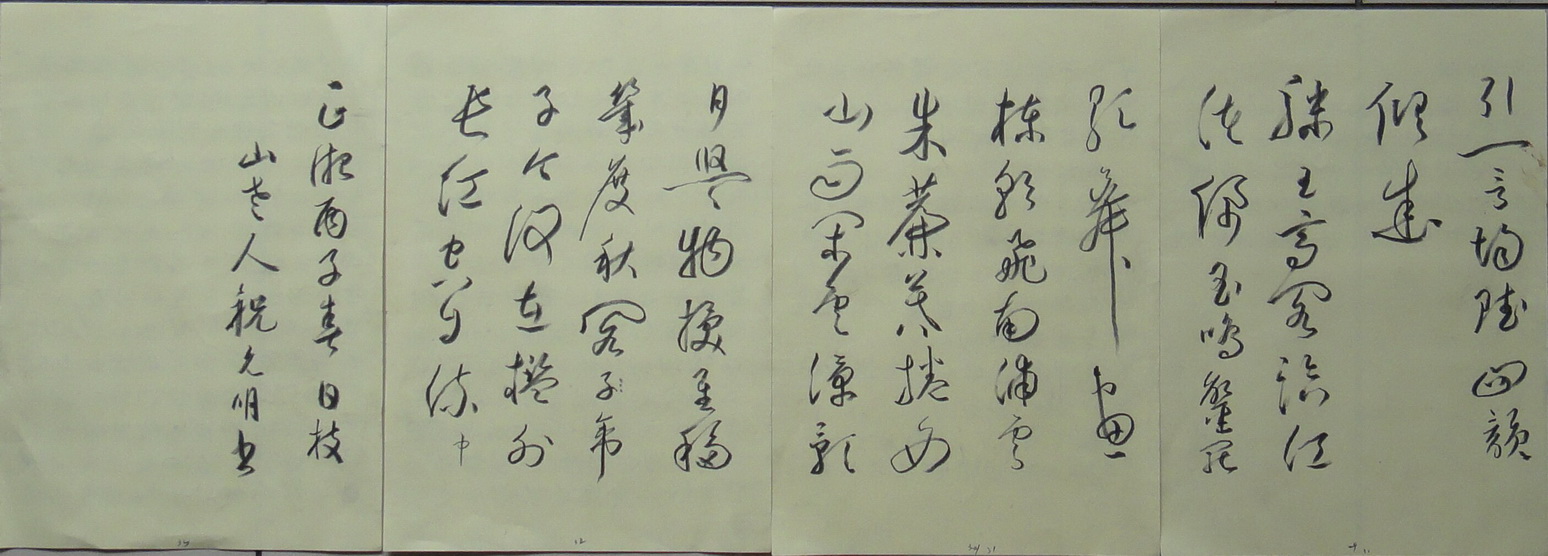 引一言均賦四韻
俱成
滕王高閣臨江
渚佩玉鳴鸞罷
歌舞畫
棟朝飛南浦雲
朱簾暮捲西
山雨閑雲潭影
日悠々物換星移
幾度秋閣子帝
子今何在檻外
長江空自流中
正德丙子春日枝
山老人祝允明書